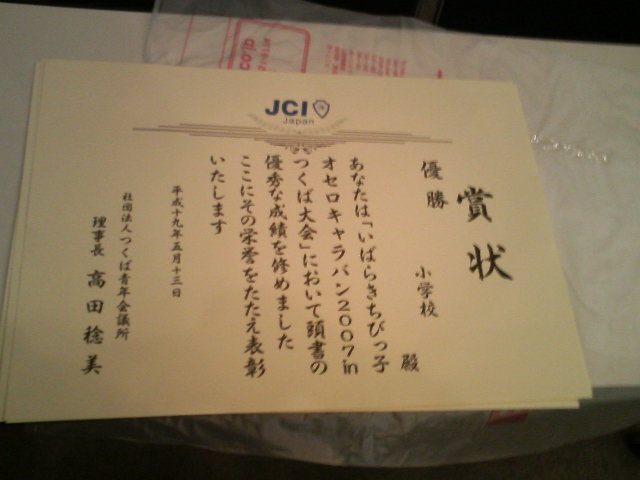 JCI
Japan
賞状
優勝
小学校 殿
あなたは「いばらきちびっ子
オセロキャラバン2007in
つくば大会」において頭書の
優秀な成績を修めました
ここにその栄誉をたたえ表彰
いたします
平成十九年五月十三日
社団法人つくば青年会議所
理事長 高田稔美
co.jp